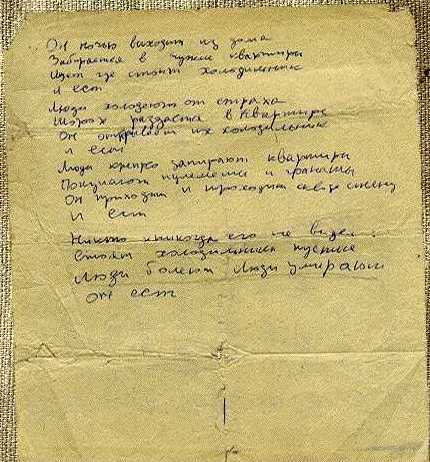 Он ночью выходит из дома
Забирается в чужие квартиры
Ищет где стоит холодильник
и ест
Люди холодеют от страха
Шорох раздастся в квартире
Он открывает их холодильник
и ест
Люди крепко запирают квартиры
Покупают пулеметы и гранаты
Он приходит и проходит сквозь стену
и ест
Никто никогда его не видел
Стоят холодильники пустые
Люди болеют люди умирают
он ест